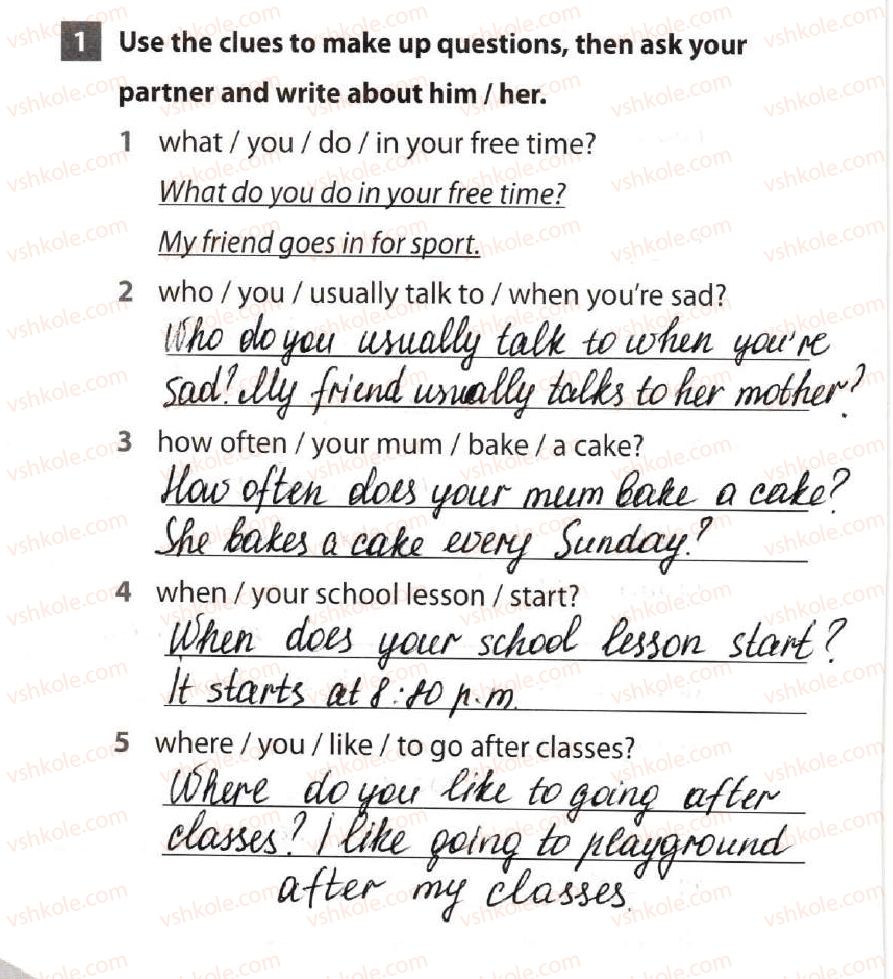 1 Use the clues to make up questions, then ask your
partner and write about him / her.
1 what / you / do / in your free time?
What do you do in your free time?
My friend goes in for sport.
2 who / you / usually talk to / when you're sad?
Who do you usually talk to when you're
sad? My friend usually talks to her mother?
3 how often / your mum / bake / a cake?
How often does your mum bake a cake?
She bakes a cake every Sunday?
4 when / your school lesson / start?
When does your school lesson start?
It starts at 8:10 p.m.
5 where / you / like / to go after classes?
Where do you like to going after
classes? I like going to playground
after my classes.
vshkole.com